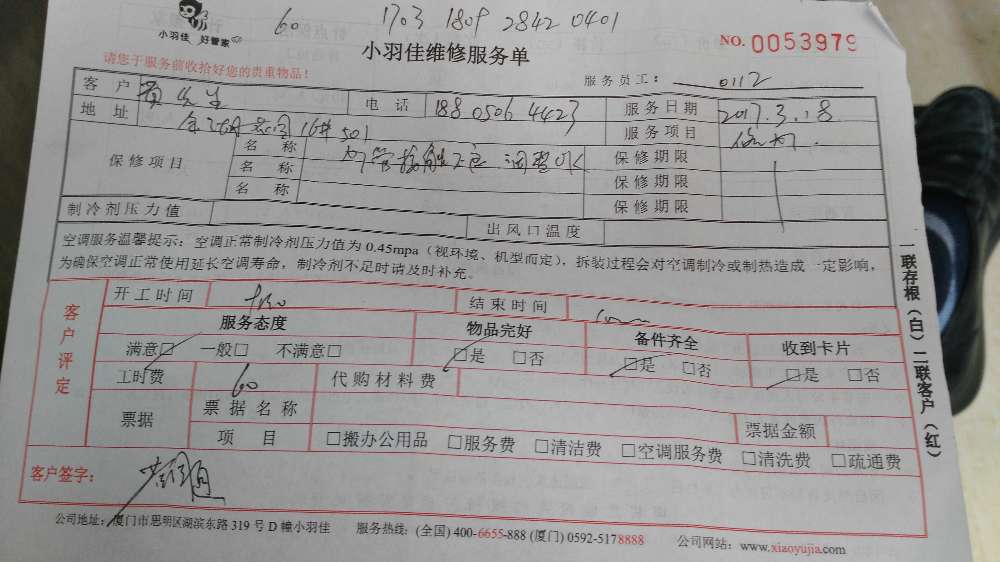 60 1703 1809 2842 0401
小羽佳 好管家
小羽佳维修服务单
NO. 0053979
请您于服务前收拾好您的贵重物品！
服务员工： 0112
客 户 电 话 188 0506 4423 服务日期 2017.3.18
地 址 16# 501 服务项目
保修项目 名 称 调整OK 保修期限
名 称 保修期限
名 称 保修期限
制冷剂压力值 出风口温度
空调服务温馨提示：空调正常制冷剂压力值为 0.45mpa（视环境、机型而定），拆装过程会对空调制冷或制热造成一定影响，
为确保空调正常使用延长空调寿命，制冷剂不足时请及时补充。
客户评定
开工时间 结束时间
服务态度 物品完好 备件齐全 收到卡片
满意□ 一般□ 不满意□ □是 □否 □是 □否 □是 □否
工时费 60 代购材料费
票据 票据名称 票据金额
项 目 □搬办公用品 □服务费 □清洁费 □空调服务费 □清洗费 □疏通费
客户签字：
一联存根（白）二联客户（红）
公司地址：厦门市思明区湖滨东路 319 号 D 幢小羽佳 服务热线: (全国) 400-6655-888 (厦门) 0592-5178888 公司网站：www.xiaoyujia.com